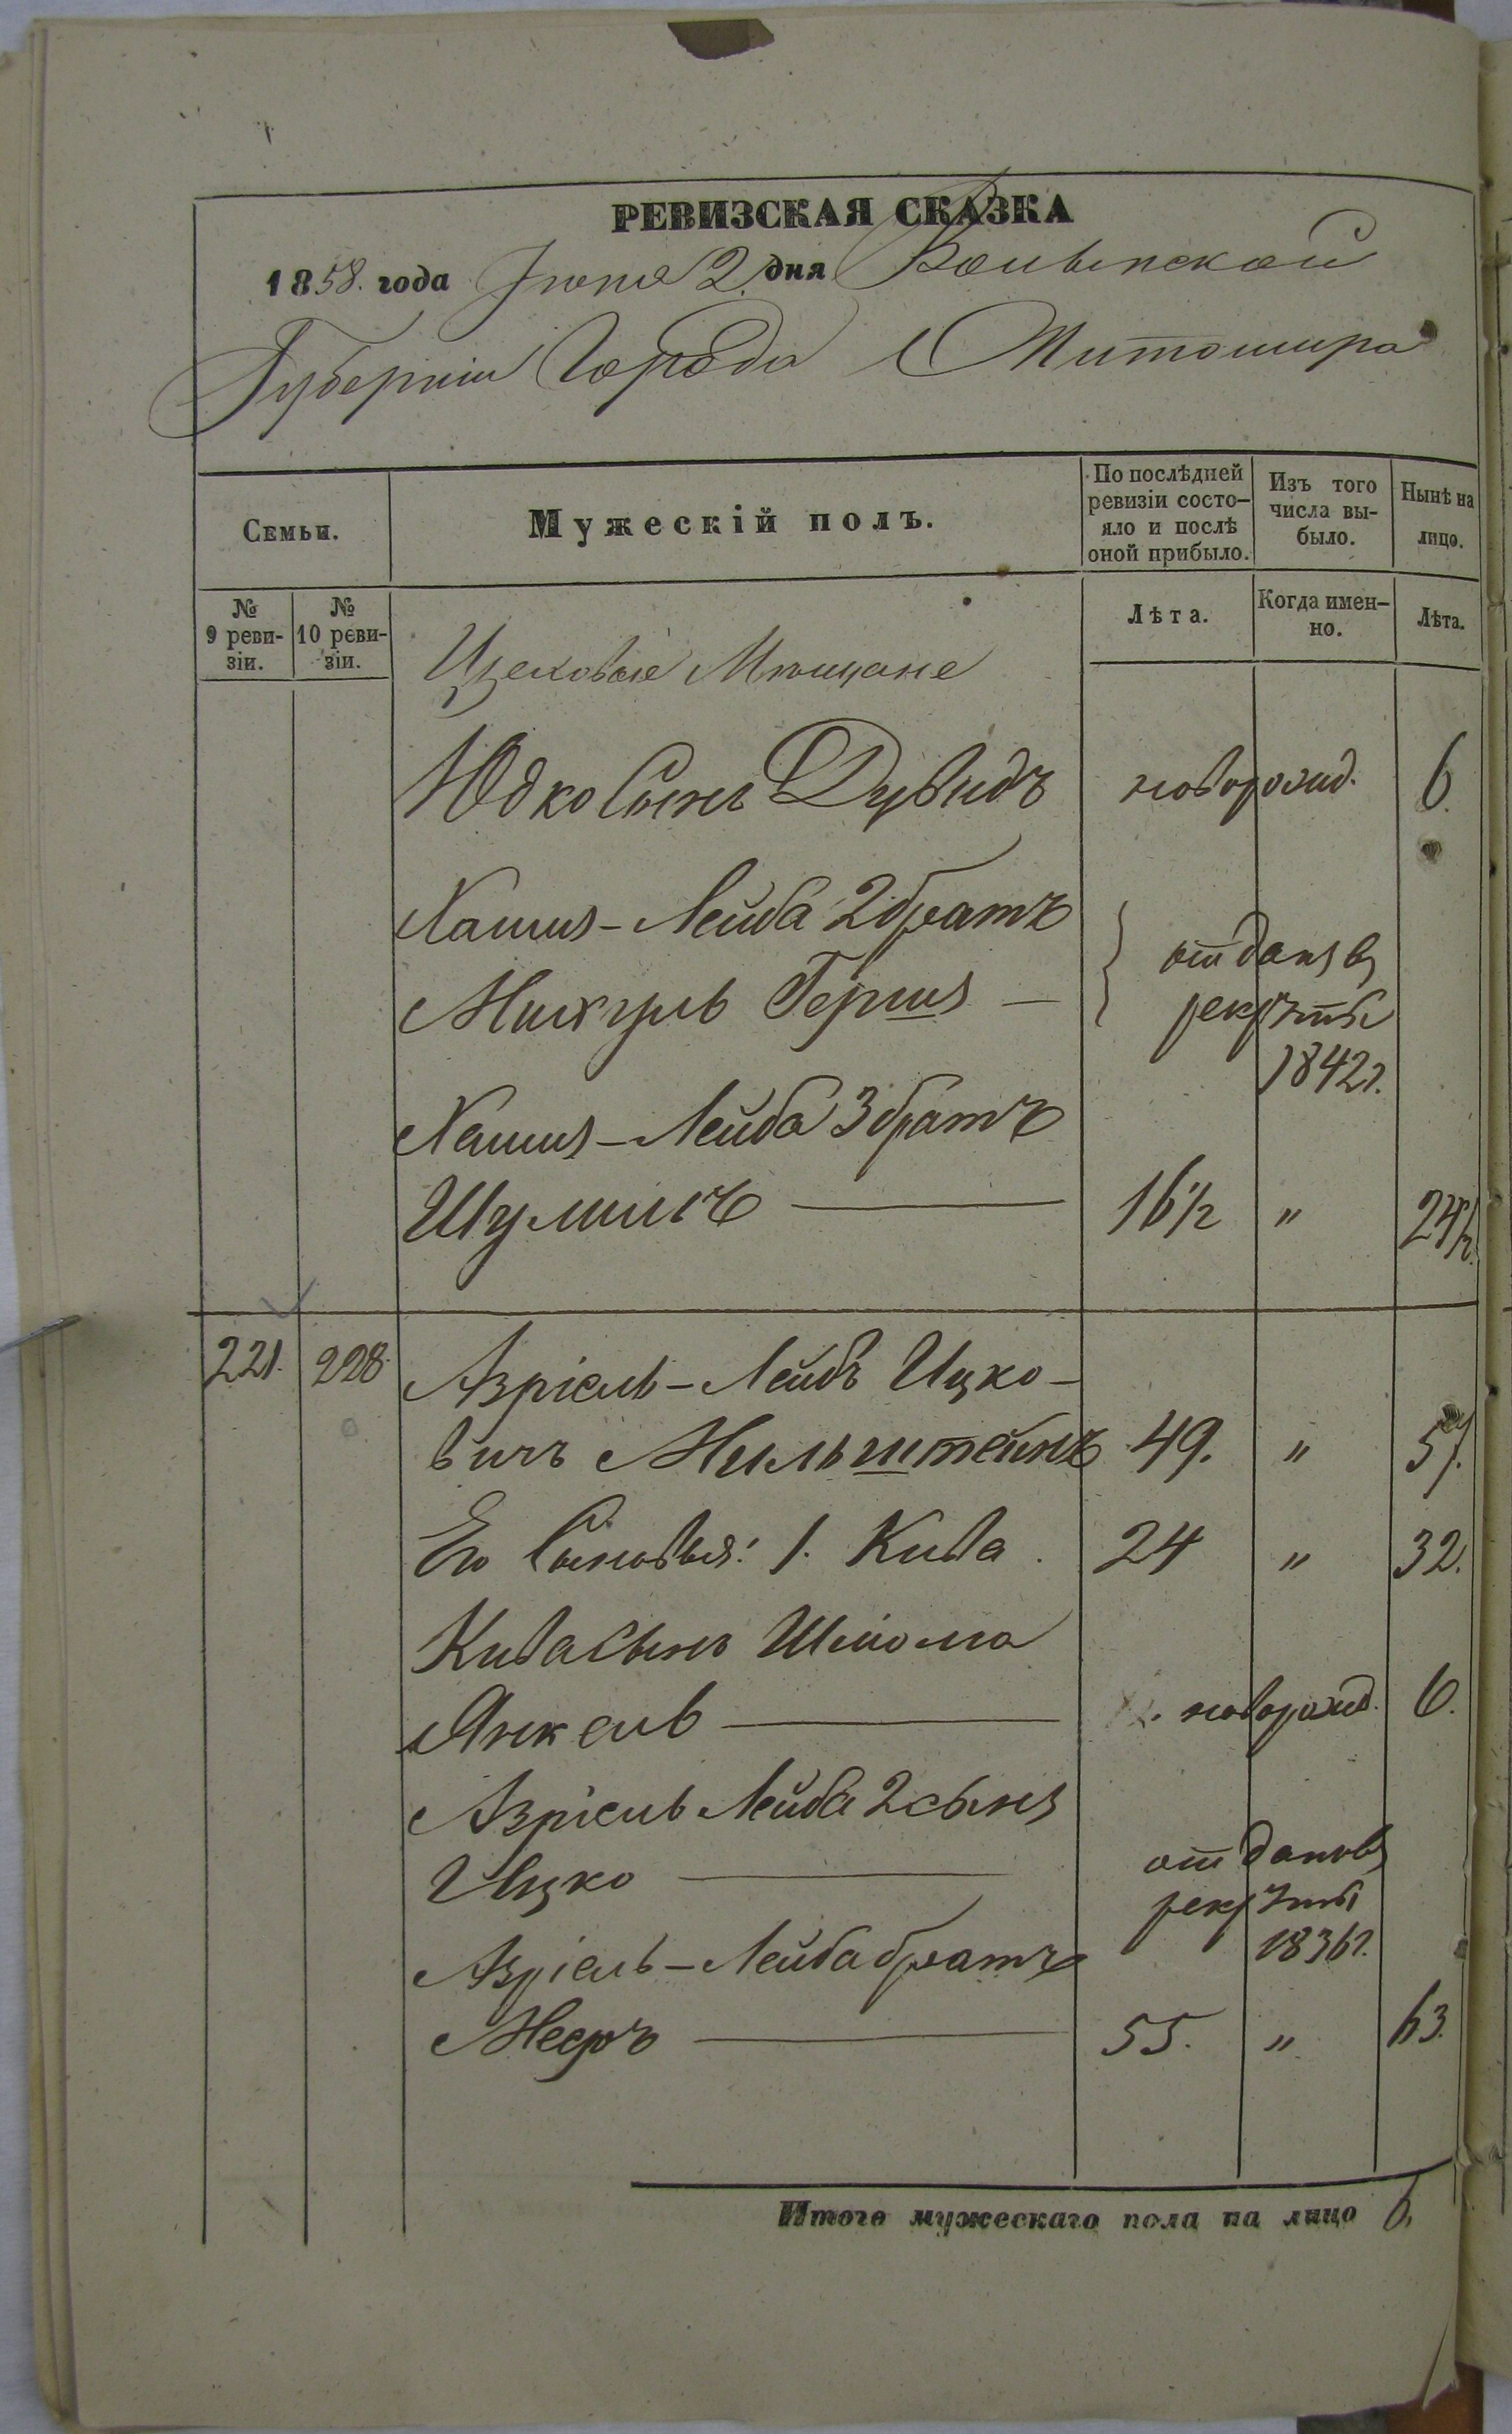 РЕВИЗСКАЯ СКАЗКА
1858. года Іюня 2. дня Волынской
Губерніи Города Житомира
Семьи.
Мужескій полъ.
По послѣдней ревизіи состо-
яло и послѣ оной прибыло.
Изъ того числа вы-
было.
Нынѣ на лицо.
№ 9 реви-
зіи.
№ 10 реви-
зіи.
Лѣта.
Когда имен-
но.
Лѣта.
Цеховые Мѣщане
Юдко Сынъ Дувидъ новорожд. 6.
Лейба 2 братъ
Гершъ — } отданъ въ
рекруты
1842 г.
Лейба 3 братъ
Шулимъ — 16 1/2 " 24 1/2.
221. 228. Азріель-Лейбъ Ицко-
вичъ Мильштейнъ 49. " 57.
Его Сыновья: 1. Кива. 24 " 32.
Кива сынъ Шліома
Янкель — новорожд. 6.
Азріель Лейба 2 сынъ
Ицко — отданъ въ
рекруты
1836 г.
Азріель-Лейба братъ
Мееръ — 55. " 63.
Итого мужескаго пола на лицо 6.